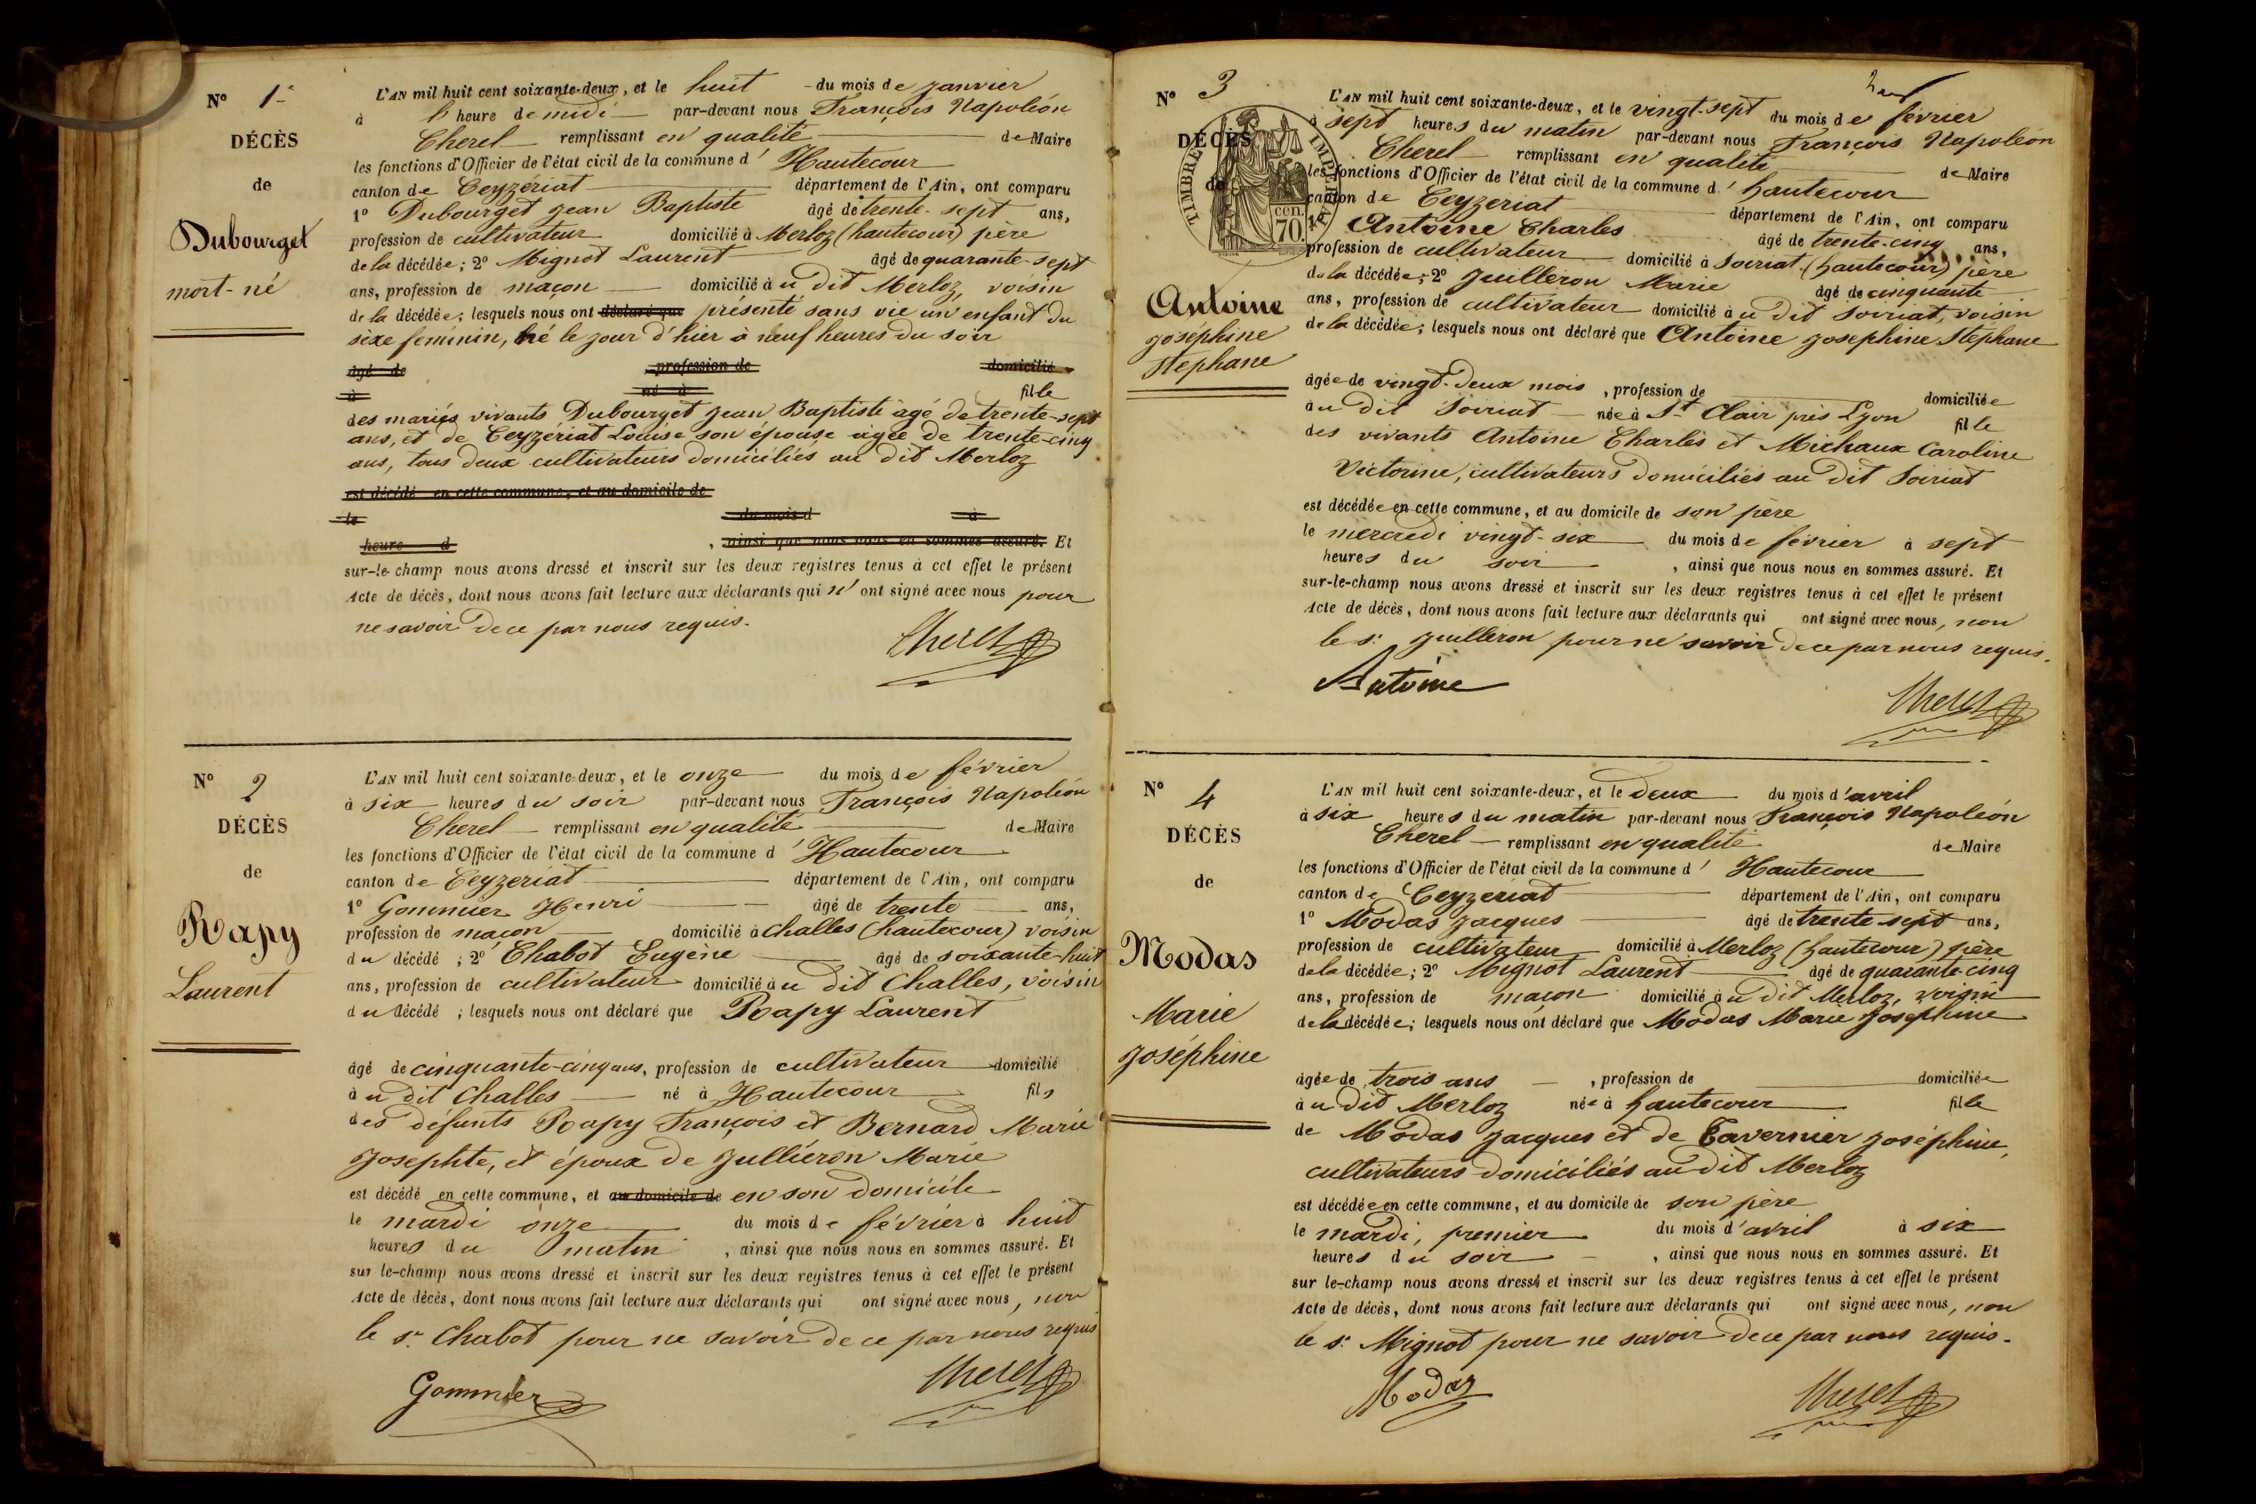 N° 1er
DÉCÈS
de
Dubourget
mort-né
L'AN mil huit cent soixante-deux, et le huit du mois de janvier
à heure de midi par-devant nous François Napoléon
Cherel remplissant en qualité de Maire
les fonctions d'Officier de l'état civil de la commune d' Hautecour
canton de Ceyzériat département de l'Ain, ont comparu
1° Dubourget Jean Baptiste âgé de trente-sept ans,
profession de cultivateur domicilié à Merloz (hautecour) père
de la décédée; 2° Mignot Laurent âgé de quarante-sept
ans, profession de maçon domicilié à u dit Merloz, voisin
de la décédée; lesquels nous ont déclaré que présenté sans vie un enfant du
sexe féminin, né le jour d'hier à neuf heures du soir
âgé de , profession de domicilié
à né à fille
des mariés vivants Dubourget Jean Baptiste âgé de trente-sept
ans, et de Ceyzériat Louise son épouse âgée de trente-cinq
ans, tous deux cultivateurs domiciliés au dit Merloz
est décédé en cette commune, et au domicile de
le du mois d à
heure d , ainsi que nous nous en sommes assuré. Et
sur-le-champ nous avons dressé et inscrit sur les deux registres tenus à cet effet le présent
Acte de décès, dont nous avons fait lecture aux déclarants qui n' ont signé avec nous pour
ne savoir de ce par nous requis.
Cherel
N° 2
DÉCÈS
de
Rapy
Laurent
L'AN mil huit cent soixante-deux, et le onze du mois de février
à six heures du soir par-devant nous François Napoléon
Cherel remplissant en qualité de Maire
les fonctions d'Officier de l'état civil de la commune d' Hautecour
canton de Ceyzeriat département de l'Ain, ont comparu
1° Gommier Henri âgé de trente ans,
profession de maçon domicilié à Challes (hautecour) voisin
du décédé ; 2° Chabot Eugène âgé de soixante-huit
ans, profession de cultivateur domicilié à u dit Challes, voisin
du décédé ; lesquels nous ont déclaré que Rapy Laurent
âgé de cinquante-cinq ans, profession de cultivateur domicilié
à u dit Challes né à Hautecour fils
des défunts Rapy François et Bernard Marie
Josephte, et époux de Julliéron Marie
est décédé en cette commune, et au domicile de en son domicile
le mardi onze du mois de février à huit
heures du matin , ainsi que nous nous en sommes assuré. Et
sur le-champ nous avons dressé et inscrit sur les deux registres tenus à cet effet le présent
Acte de décès, dont nous avons fait lecture aux déclarants qui ont signé avec nous, non
le sr Chabot pour ne savoir de ce par nous requis
Gommier Cherel
N° 3
DÉCÈS
de
TIMBRE IMPÉRIAL
70 CEN.
Antoine
Joséphine
Stéphane
L'AN mil huit cent soixante-deux, et le vingt-sept du mois de février
à sept heures du matin par-devant nous François Napoléon
Cherel remplissant en qualité de Maire
les fonctions d'Officier de l'état civil de la commune d' hautecour
canton de Ceyzeriat département de l'Ain, ont comparu
1° Antoine Charles âgé de trente-cinq ans,
profession de cultivateur domicilié à Soiriat (hautecour) père
de la décédée; 2° Juilleron Marie âgé de cinquante
ans, profession de cultivateur domicilié à u dit Soiriat, voisin
de la décédée; lesquels nous ont déclaré que Antoine Josephine Stephane
âgée de vingt-deux mois , profession de domiciliée
à u dit Soiriat née à St Clair près Lyon fille
des vivants Antoine Charles et Michaux Caroline
Victorine, cultivateurs domiciliés au dit Soiriat
est décédée en cette commune, et au domicile de son père
le mercredi vingt-six du mois de février à sept
heures du soir , ainsi que nous nous en sommes assuré. Et
sur-le-champ nous avons dressé et inscrit sur les deux registres tenus à cet effet le présent
Acte de décès, dont nous avons fait lecture aux déclarants qui ont signé avec nous, non
le sr Juilleron pour ne savoir de ce par nous requis.
Antoine
Cherel
N° 4
DÉCÈS
de
Modas
Marie
Joséphine
L'AN mil huit cent soixante-deux, et le deux du mois d'avril
à six heures du matin par-devant nous François Napoléon
Cherel remplissant en qualité de Maire
les fonctions d'Officier de l'état civil de la commune d' Hautecour
canton de Ceyzeriat département de l'Ain, ont comparu
1° Modas Jacques âgé de trente-sept ans,
profession de cultivateur domicilié à Merloz (hautecour) père
de la décédée; 2° Mignot Laurent âgé de quarante-cinq
ans, profession de maçon domicilié à u dit Merloz, voisin
de la décédée; lesquels nous ont déclaré que Modas Marie Josephine
âgée de trois ans , profession de domiciliée
à u dit Merloz née à hautecour fille
de Modas Jacques et de Tavernier Joséphine,
cultivateurs domiciliés au dit Merloz
est décédée en cette commune, et au domicile de son père
le mardi, premier du mois d'avril à six
heures du soir , ainsi que nous nous en sommes assuré. Et
sur le-champ nous avons dressé et inscrit sur les deux registres tenus à cet effet le présent
Acte de décès, dont nous avons fait lecture aux déclarants qui ont signé avec nous, non
le sr Mignot pour ne savoir de ce par nous requis.
Modas Cherel